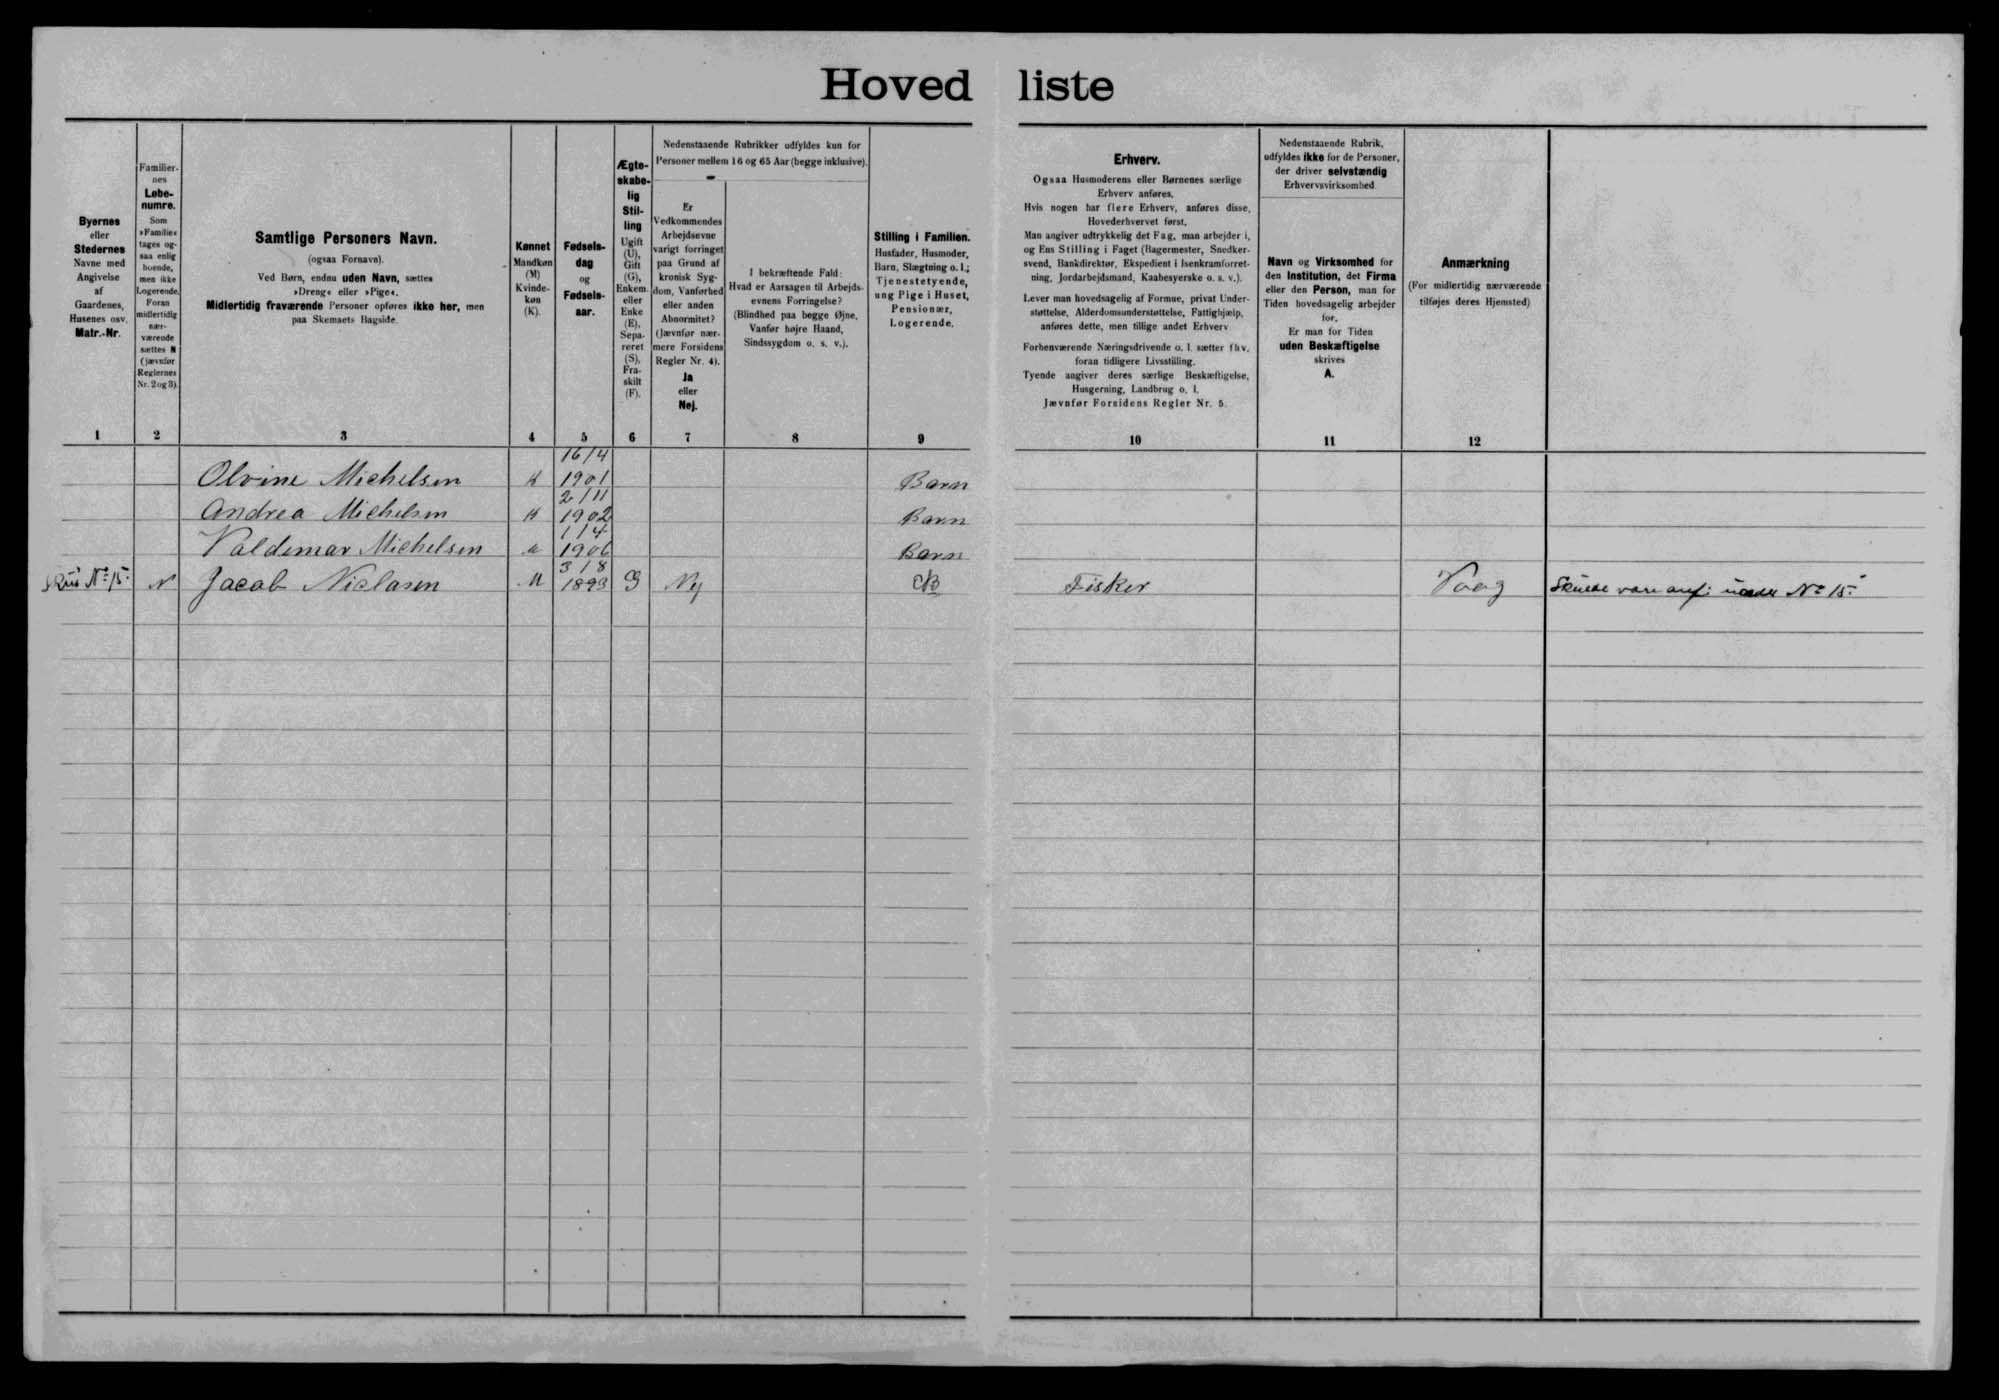 Hoved liste
Byernes
eller
Stedernes
Navne med
Angivelse
af
Gaardenes,
Husenes osv.
Matr.-Nr.
1
Familier-
nes
Løbe-
numre.
Som
»Familie«
tages og-
saa enlig
boende,
men ikke
Logerende.
Foran
midlertidig
nær-
værende
sættes N
(jævnfør
Reglernes
Nr. 2 og 3).
2
Samtlige Personers Navn.
(ogsaa Fornavn).
Ved Børn, endnu uden Navn, sættes
»Dreng« eller »Pige«.
Midlertidig fraværende Personer opføres ikke her, men
paa Skemaets Bagside.
3
Kønnet
Mandkøn
(M)
Kvinde-
køn
(K).
4
Fødsels-
dag
og
Fødsels-
aar.
5
Ægte-
skabe-
lig
Stil-
ling
Ugift
(U),
Gift
(G),
Enkem.
eller
Enke
(E),
Sepa-
reret
(S),
Fra-
skilt
(F).
6
Nedenstaaende Rubrikker udfyldes kun for
Personer mellem 16 og 65 Aar (begge inklusive).
Er
Vedkommendes
Arbejdsevne
varigt forringet
paa Grund af
kronisk Syg-
dom, Vanførhed
eller anden
Abnormitet?
(Jævnfør nær-
mere Forsidens
Regler Nr. 4).
Ja
eller
Nej.
7
I bekræftende Fald:
Hvad er Aarsagen til Arbejds-
evnens Forringelse?
(Blindhed paa begge Øjne,
Vanfør højre Haand,
Sindssygdom o. s. v.).
8
Stilling i Familien.
Husfader, Husmoder,
Barn, Slægtning o. l.;
Tjenestetyende,
ung Pige i Huset,
Pensionær,
Logerende.
9
Erhverv.
Ogsaa Husmoderens eller Børnenes særlige
Erhverv anføres.
Hvis nogen har flere Erhverv, anføres disse,
Hovederhvervet først.
Man angiver udtrykkelig det Fag, man arbejder i,
og Ens Stilling i Faget (Bagermester, Snedker-
svend, Bankdirektør, Ekspedient i Isenkramforret-
ning, Jordarbejdsmand, Kaabesyerske o. s. v.).
Lever man hovedsagelig af Formue, privat Under-
støttelse, Alderdomsunderstøttelse, Fattighjælp,
anføres dette, men tillige andet Erhverv
Forhenværende Næringsdrivende o. l. sætter fhv.
foran tidligere Livsstilling.
Tyende angiver deres særlige Beskæftigelse,
Husgerning, Landbrug o. l.
Jævnfør Forsidens Regler Nr. 5.
10
Nedenstaaende Rubrik,
udfyldes ikke for de Personer,
der driver selvstændig
Erhvervsvirksomhed
Navn og Virksomhed for
den Institution, det Firma
eller den Person, man for
Tiden hovedsagelig arbejder
for.
Er man for Tiden
uden Beskæftigelse
skrives
A.
11
Anmærkning
(For midlertidig nærværende
tilføjes deres Hjemsted)
12
16/4
Olvine Michelsen K 1901 Barn
2/11
Andrea Michelsen K 1902 Barn
1/4
Valdemar Michelsen M 1906 Barn
3/8
No 15. N Jacob Niclasen M 1893 G Nej Fisker Vaag Skulde være anf: under No 15.